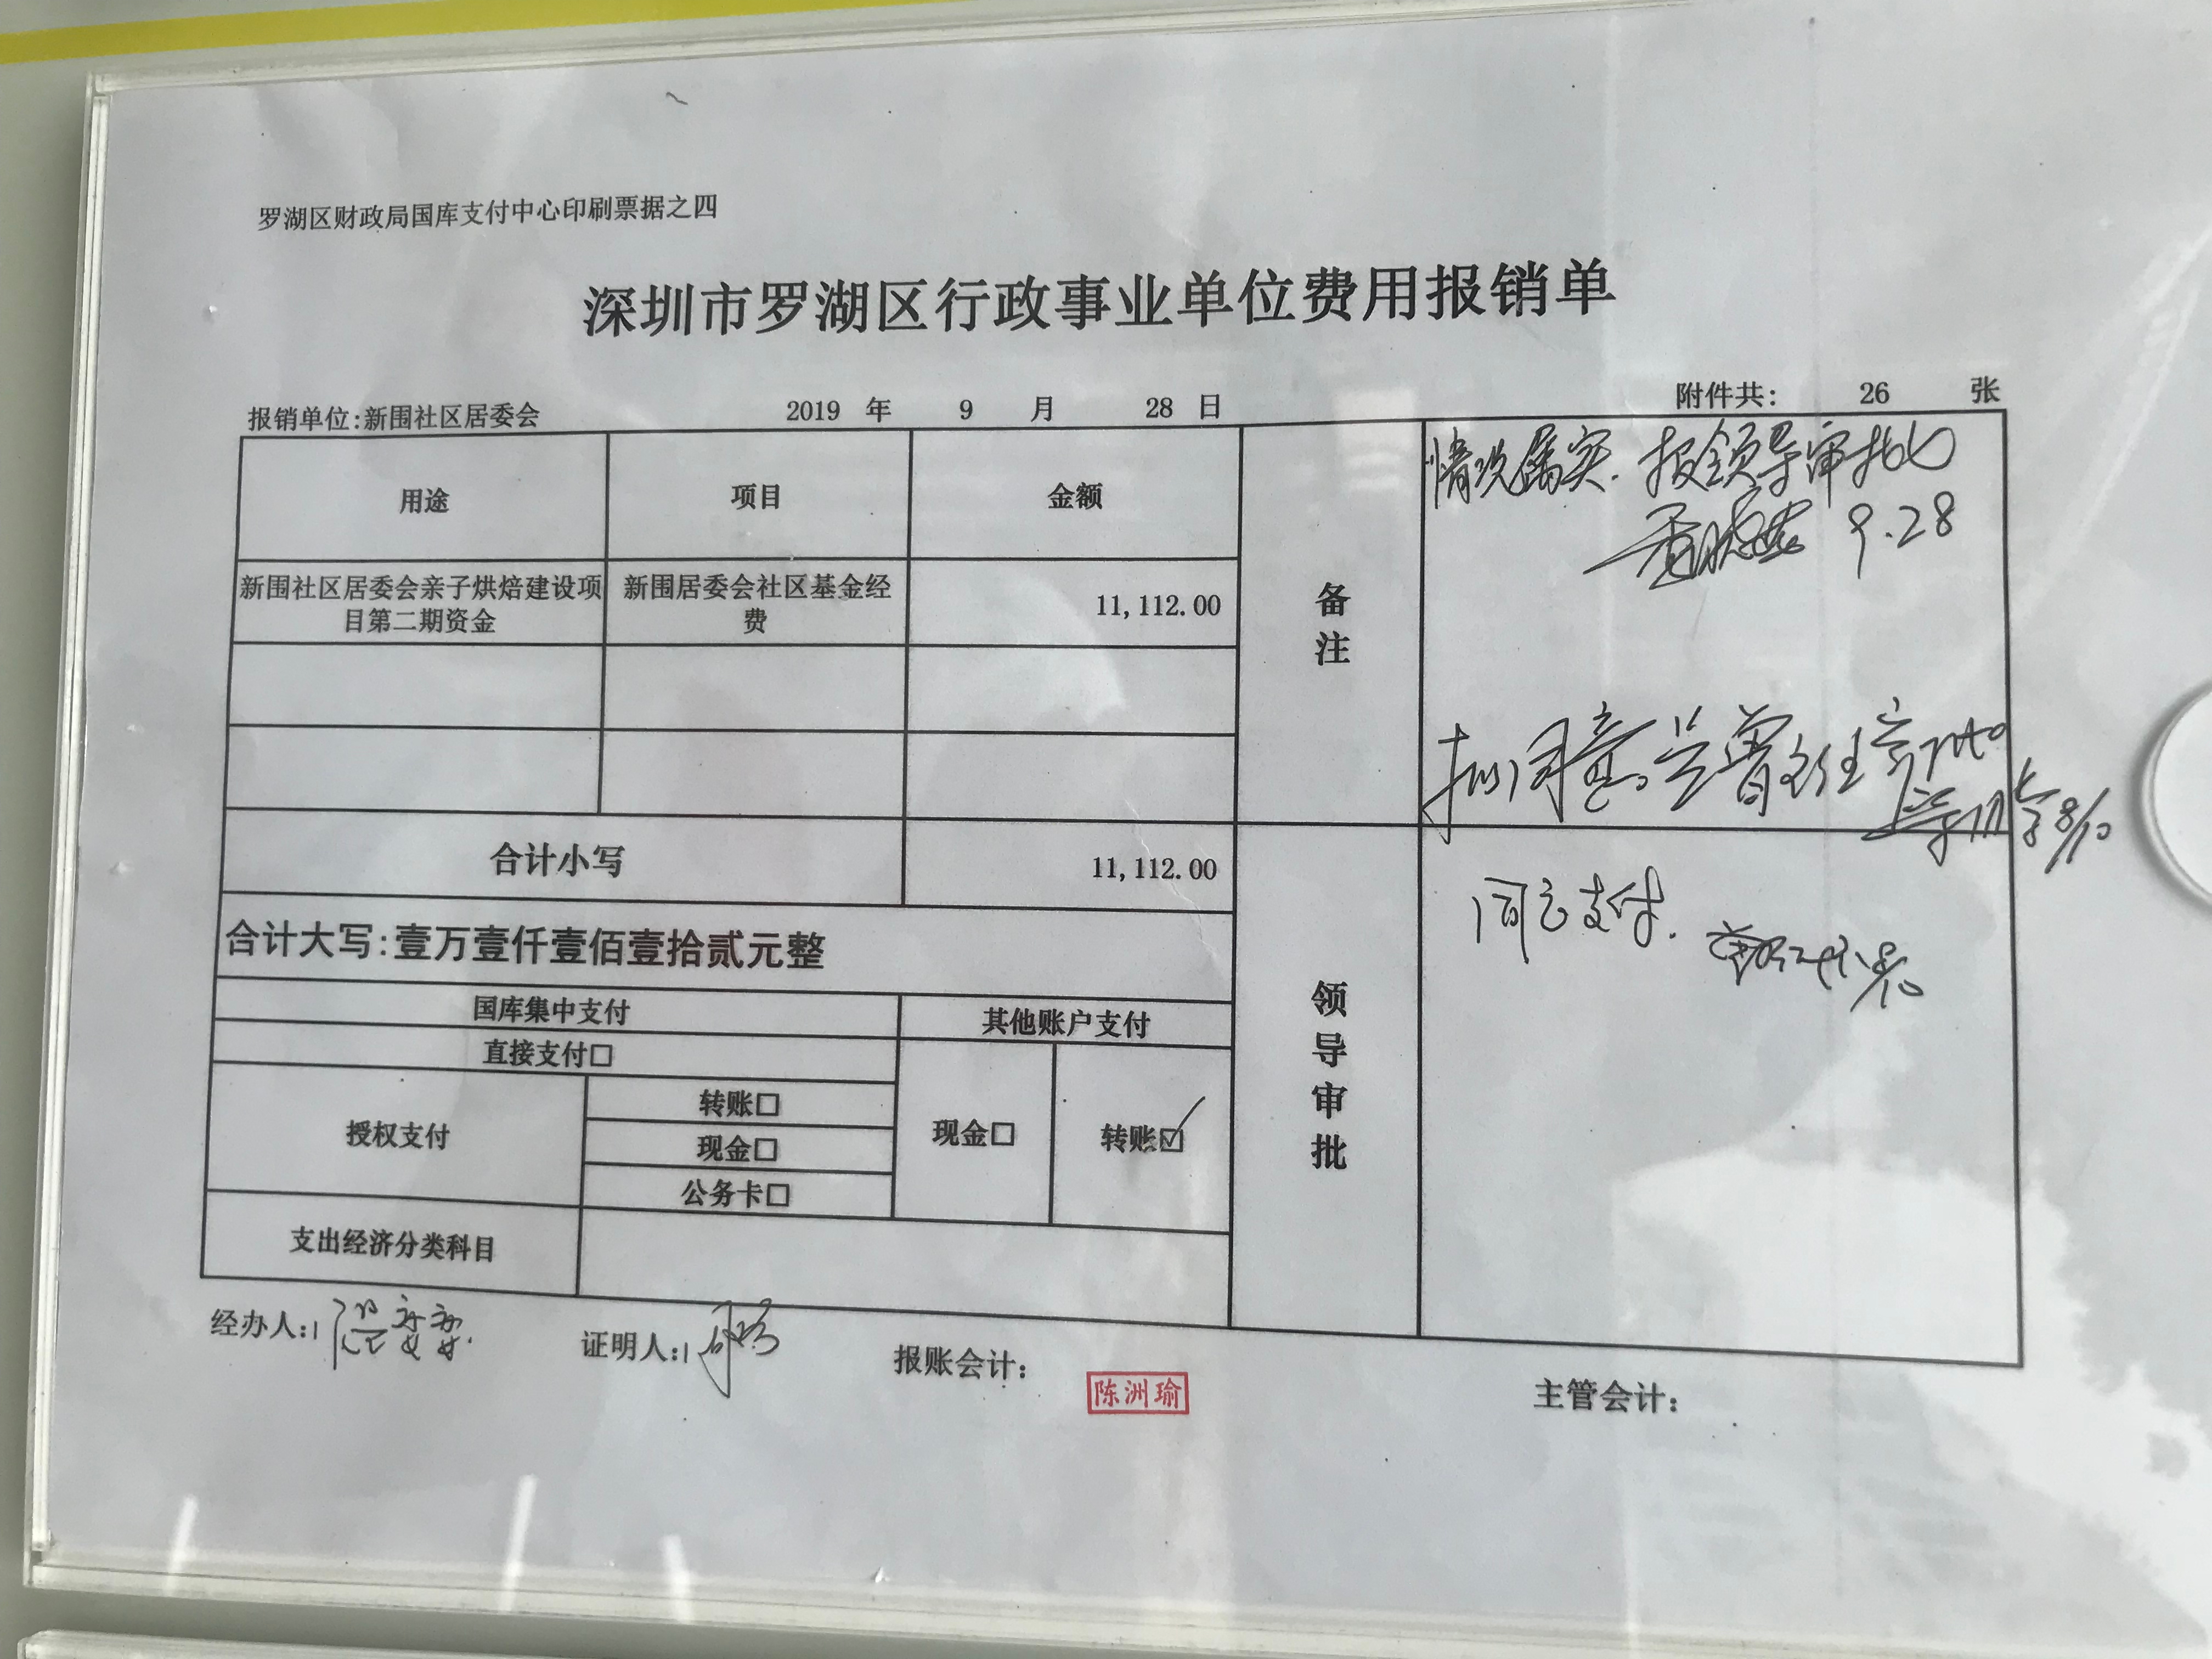 罗湖区财政局国库支付中心印刷票据之四
深圳市罗湖区行政事业单位费用报销单
报销单位:新围社区居委会 2019 年 9 月 28 日 附件共: 26 张
用途 项目 金额
新围社区居委会亲子烘焙建设项
目第二期资金
新围居委会社区基金经
费
11,112.00
合计小写 11,112.00
合计大写:壹万壹仟壹佰壹拾贰元整
国库集中支付 其他账户支付
直接支付□
授权支付
转账□
现金□
公务卡□
现金□
转账☑
支出经济分类科目
备注
情况属实.报领导审批
9.28
拟同意
8/10
领导审批
同意支付.
8/10
经办人:
证明人:
报账会计:
陈洲瑜
主管会计: